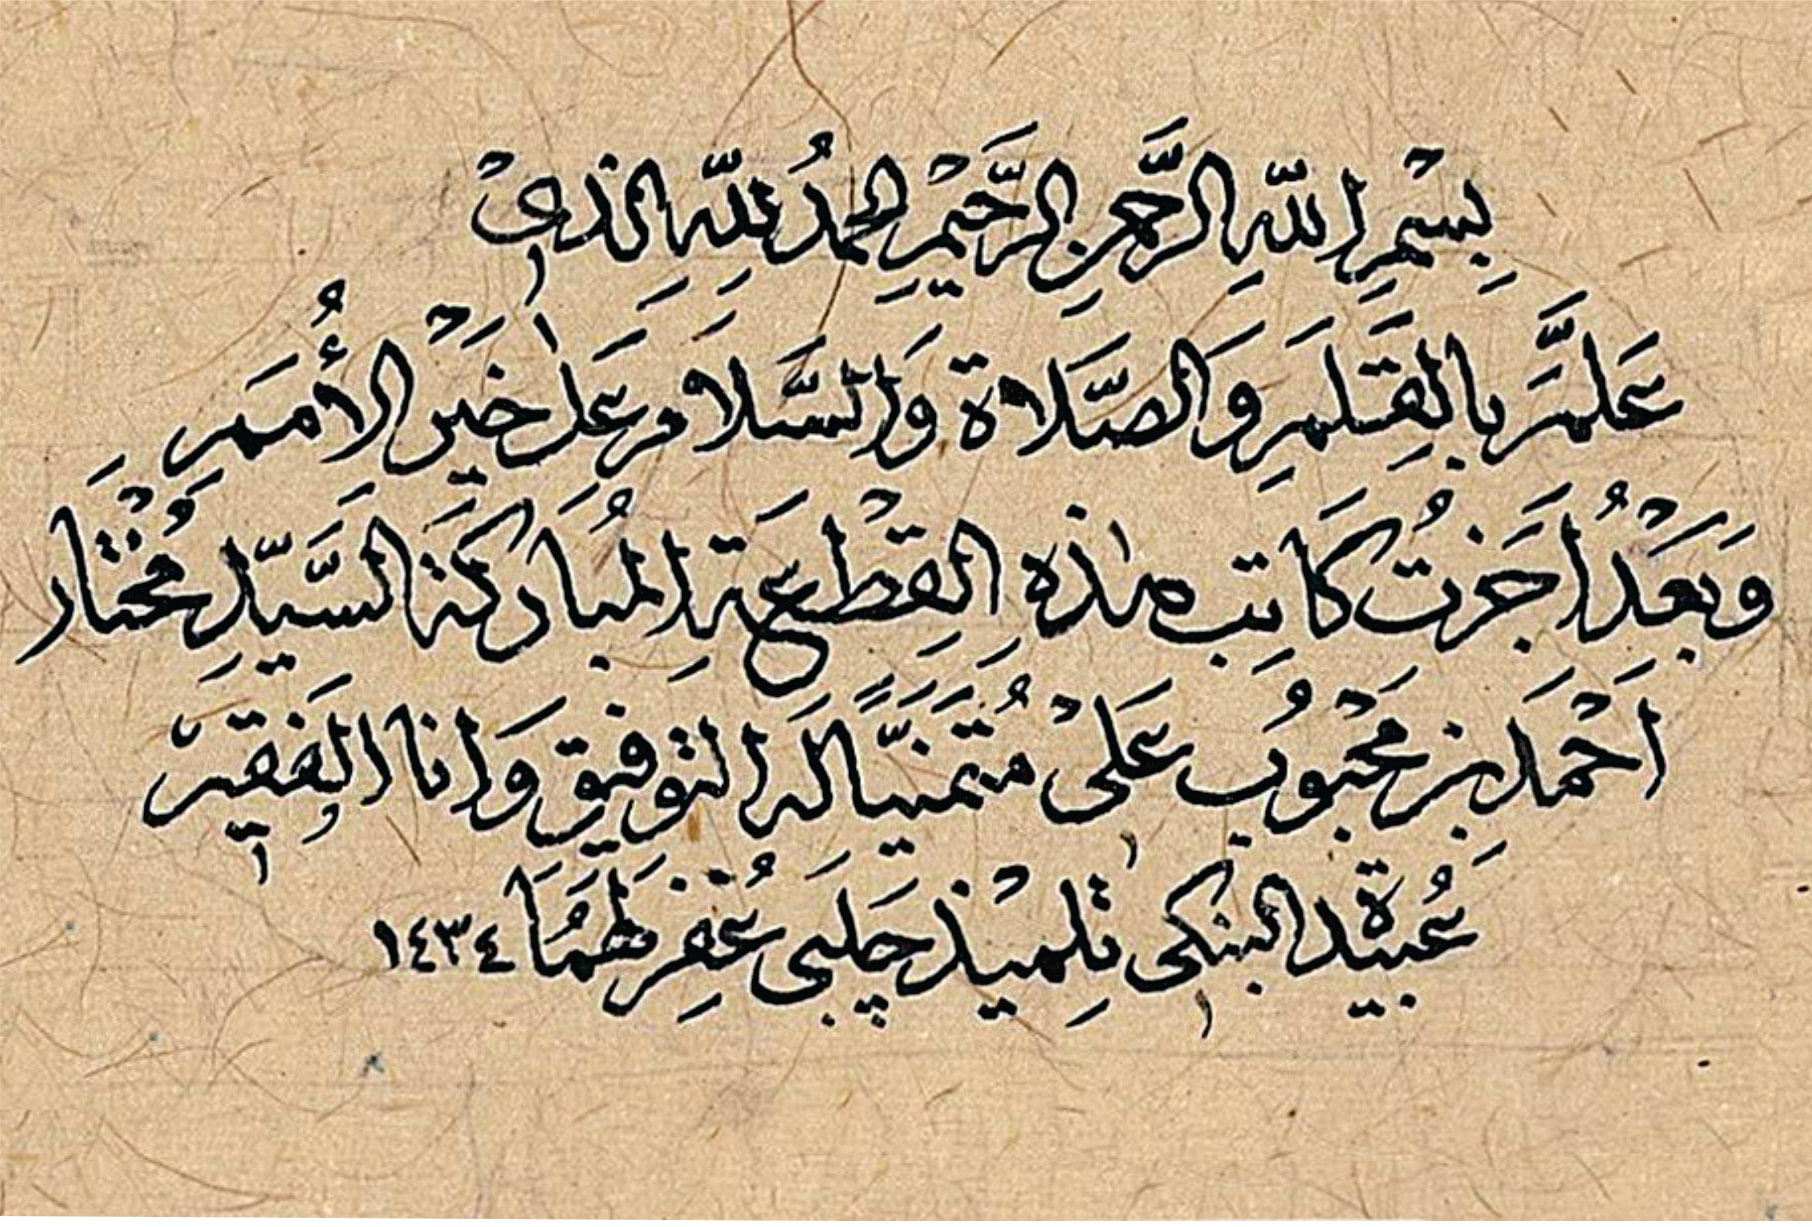 بِسْمِ اللّٰهِ الرَّحْمٰنِ الرَّحِيْمِ الحمدُ لِلّٰهِ الذىْ
عَلَّمَ بِالْقَلَمِ وَالصَّلَاةُ وَالسَّلَامُ عَلٰى خَيْرِ الأُمَمِ
وَبَعْدُ اَجَزْتُ كَاتِبَ هٰذِهِ القِطْعَةِ المُبَارَكَةَ السَّيِّدِ مُخْتَار
اَحْمَدَ بن مَحْبُوْب عَلى مُتَمَنِّيًا لَه التوفيق وَانا الفَقِير
عُبيدة البنكى تِلميذ چَلبى غُفِرَ لَهُمَا ١٤٣٤